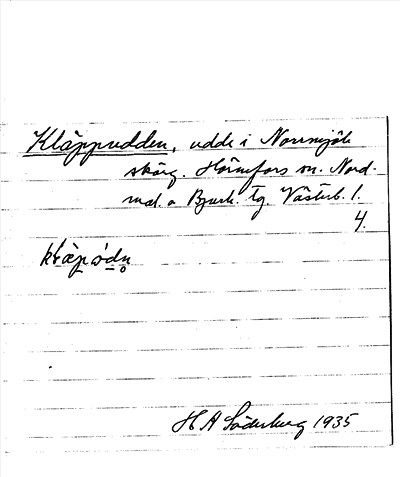 Kläppudden, udde i Norrmjöle
skärg. Hörnefors sn. Nord-
mal. o Bjurh. tg. Västerb. l.
4.
klàpǿdn̥
H A Söderberg 1935